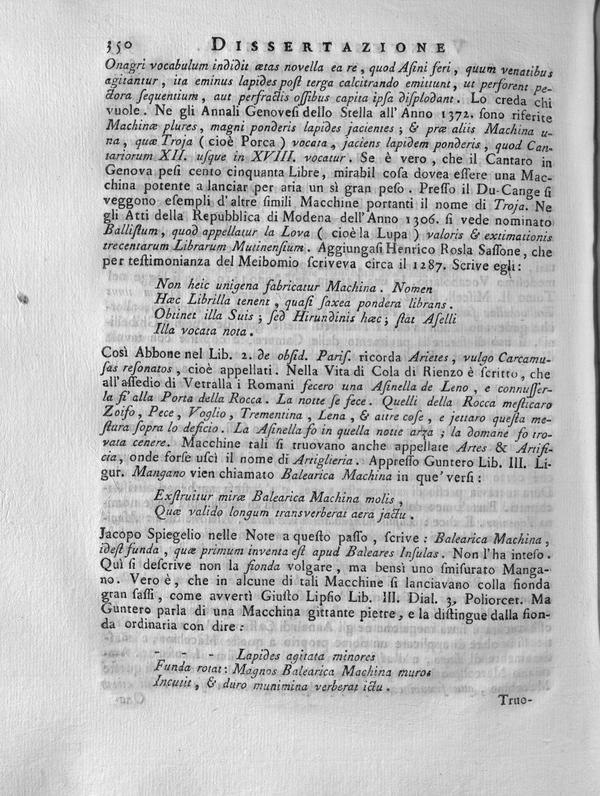 350 DISSERTAZIONE
Onagri vocabulum indidit ætas novella ea re, quod Asini feri, quum venatibus
agitantur, ita eminus lapides post terga calcitrando emittunt, ut perforent pe-
ctora sequentium, aut perfractis ossibus capita ipsa displodant. Lo creda chi
vuole. Ne gli Annali Genovesi dello Stella all'Anno 1372. sono riferite
Machinæ plures, magni ponderis lapides jacientes; & præ aliis Machina u-
na, quæ Troja (cioè Porca) vocata, jaciens lapidem ponderis, quod Can-
tariorum XII. usque in XVIII. vocatur. Se è vero, che il Cantaro in
Genova pesi cento cinquanta Libre, mirabil cosa dovea essere una Mac-
china potente a lanciar per aria un sì gran peso. Presso il Du-Cange si
veggono esempli d'altre simili Macchine portanti il nome di Troja. Ne
gli Atti della Repubblica di Modena dell'Anno 1306. si vede nominato
Ballistum, quod appellatur la Lova (cioè la Lupa) valoris & extimationis
trecentarum Librarum Mutinensium. Aggiungasi Henrico Rosla Sassone, che
per testimonianza del Meibomio scriveva circa il 1287. Scrive egli:
Non heic unigena fabricatur Machina. Nomen
Hæc Librilla tenent, quasi saxea pondera librans.
Obtinet illa Suis; sed Hirundinis hæc; stat Aselli
Illa vocata nota.
Così Abbone nel Lib. 2. de obsid. Paris. ricorda Arietes, vulgo Carcamu-
sas resonatos, cioè appellati. Nella Vita di Cola di Rienzo è scritto, che
all'assedio di Vetralla i Romani fecero una Asinella de Leno, e connusser-
la fi' alla Porta della Rocca. La notte se fece. Quelli della Rocca mesticaro
Zoifo, Pece, Voglio, Trementina, Lena, & altre cose, e jettaro questa me-
stura sopra lo deficio. La Asinella fo in quella notte arza; la domane fo tro-
vata cenere. Macchine tali si truovano anche appellate Artes & Artifi-
cia, onde forse uscì il nome di Artiglieria. Appresso Guntero Lib. III. Li-
gur. Mangano vien chiamato Balearica Machina in que' versi:
Exstruitur miræ Balearica Machina molis,
Quæ valido longum transverberat aera jactu.
Jacopo Spiegelio nelle Note a questo passo, scrive: Balearica Machina,
idest funda, quæ primum inventa est apud Baleares Insulas. Non l'ha inteso.
Quì si descrive non la fionda volgare, ma bensì uno smisurato Manga-
no. Vero è, che in alcune di tali Macchine si lanciavano colla fionda
gran sassi, come avvertì Giusto Lipsio Lib. III. Dial. 3. Poliorcet. Ma
Guntero parla di una Macchina gittante pietre, e la distingue dalla fion-
da ordinaria con dire:
- - - Lapides agitata minores
Funda rotat: Magnos Balearica Machina muros
Incutit, & duro munimina verberat ictu.
Truo-